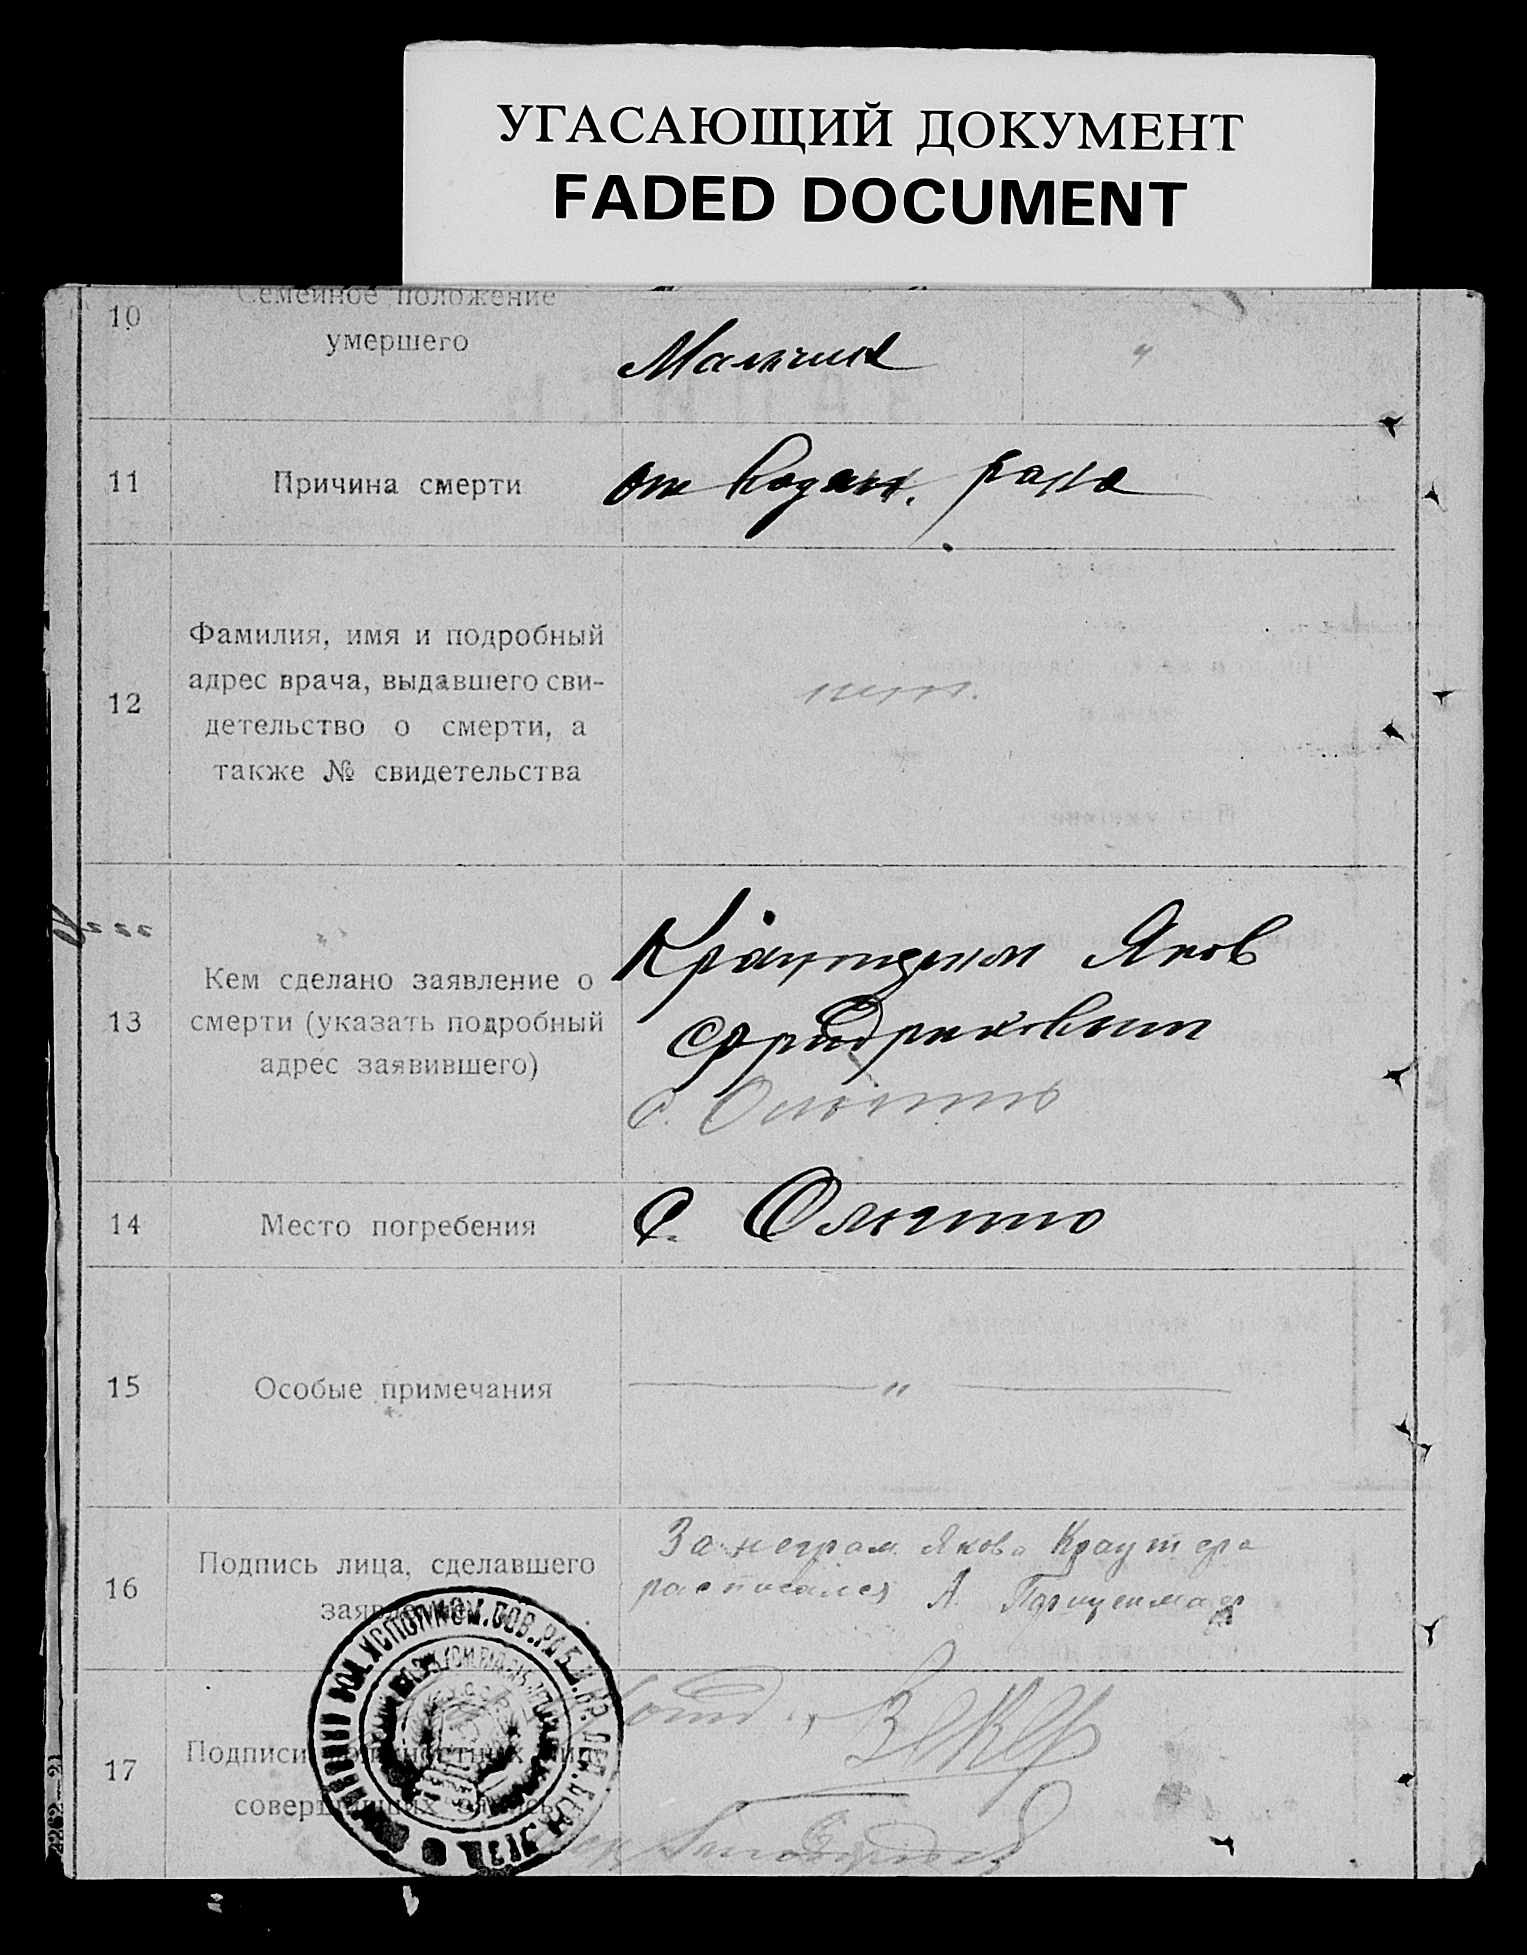 УГАСАЮЩИЙ ДОКУМЕНТ
FADED DOCUMENT
10
Семейное положение
умершего
Мальчик
11
Причина смерти
от
12
Фамилия, имя и подробный
адрес врача, выдавшего сви-
детельство о смерти, а
также № свидетельства
нет.
13
Кем сделано заявление о
смерти (указать подробный
адрес заявившего)
Яков
Фридрихович
с. Ольгино
14
Место погребения
с. Ольгино
15
Особые примечания
"
16
Подпись лица, сделавшего
За неграм. Якова Краутера
расписался А.
17
Подписи
2262—21